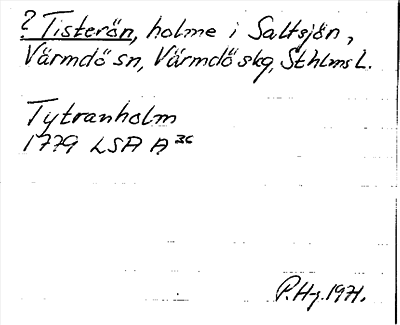 ? Tisterön, holme i Saltsjön,
Värmdö sn, Värmdö skg, Sthlms L.
Tytranholm
1779 LSA A 36
P.Hg. 1971.